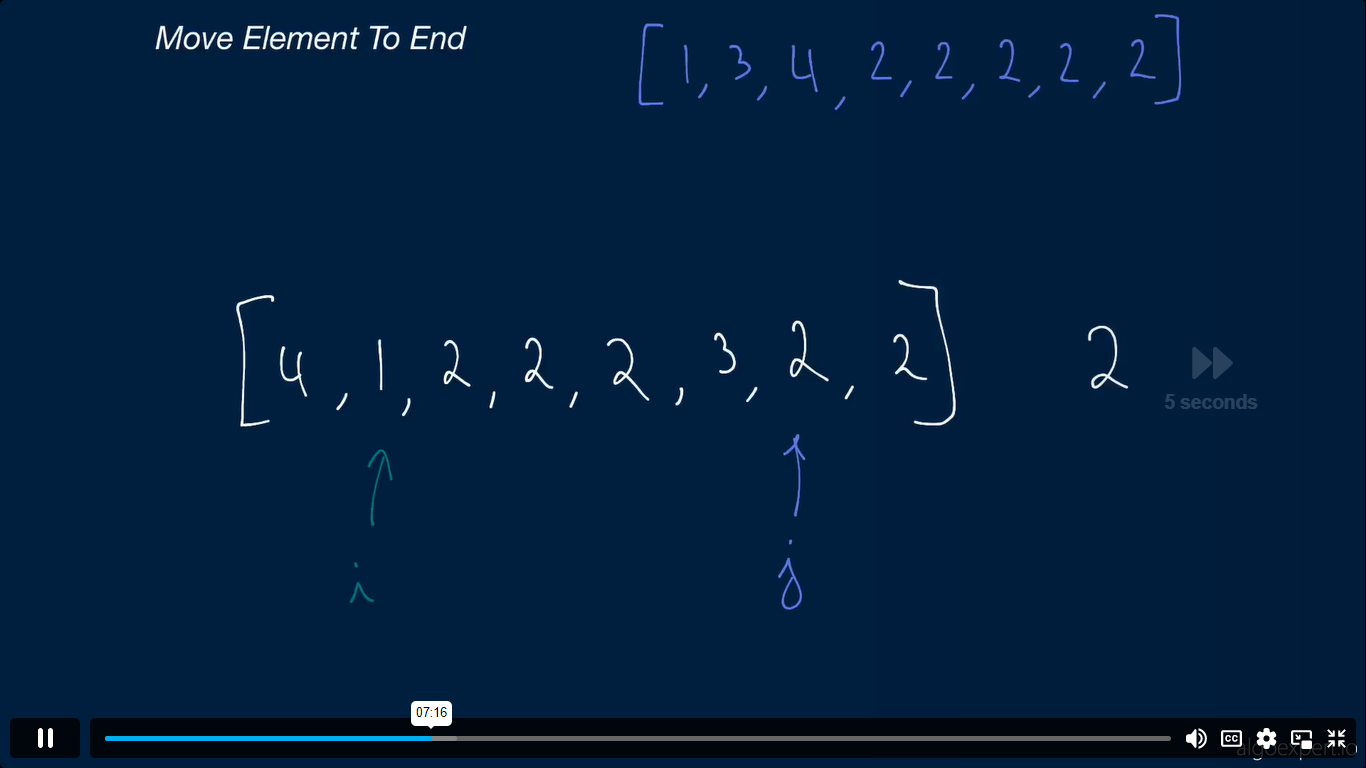 Move Element To End
[1, 3, 4, 2, 2, 2, 2, 2]
[4, 1, 2, 2, 2, 3, 2, 2] 2
5 seconds
i j
07:16
CC
algoexpert.io